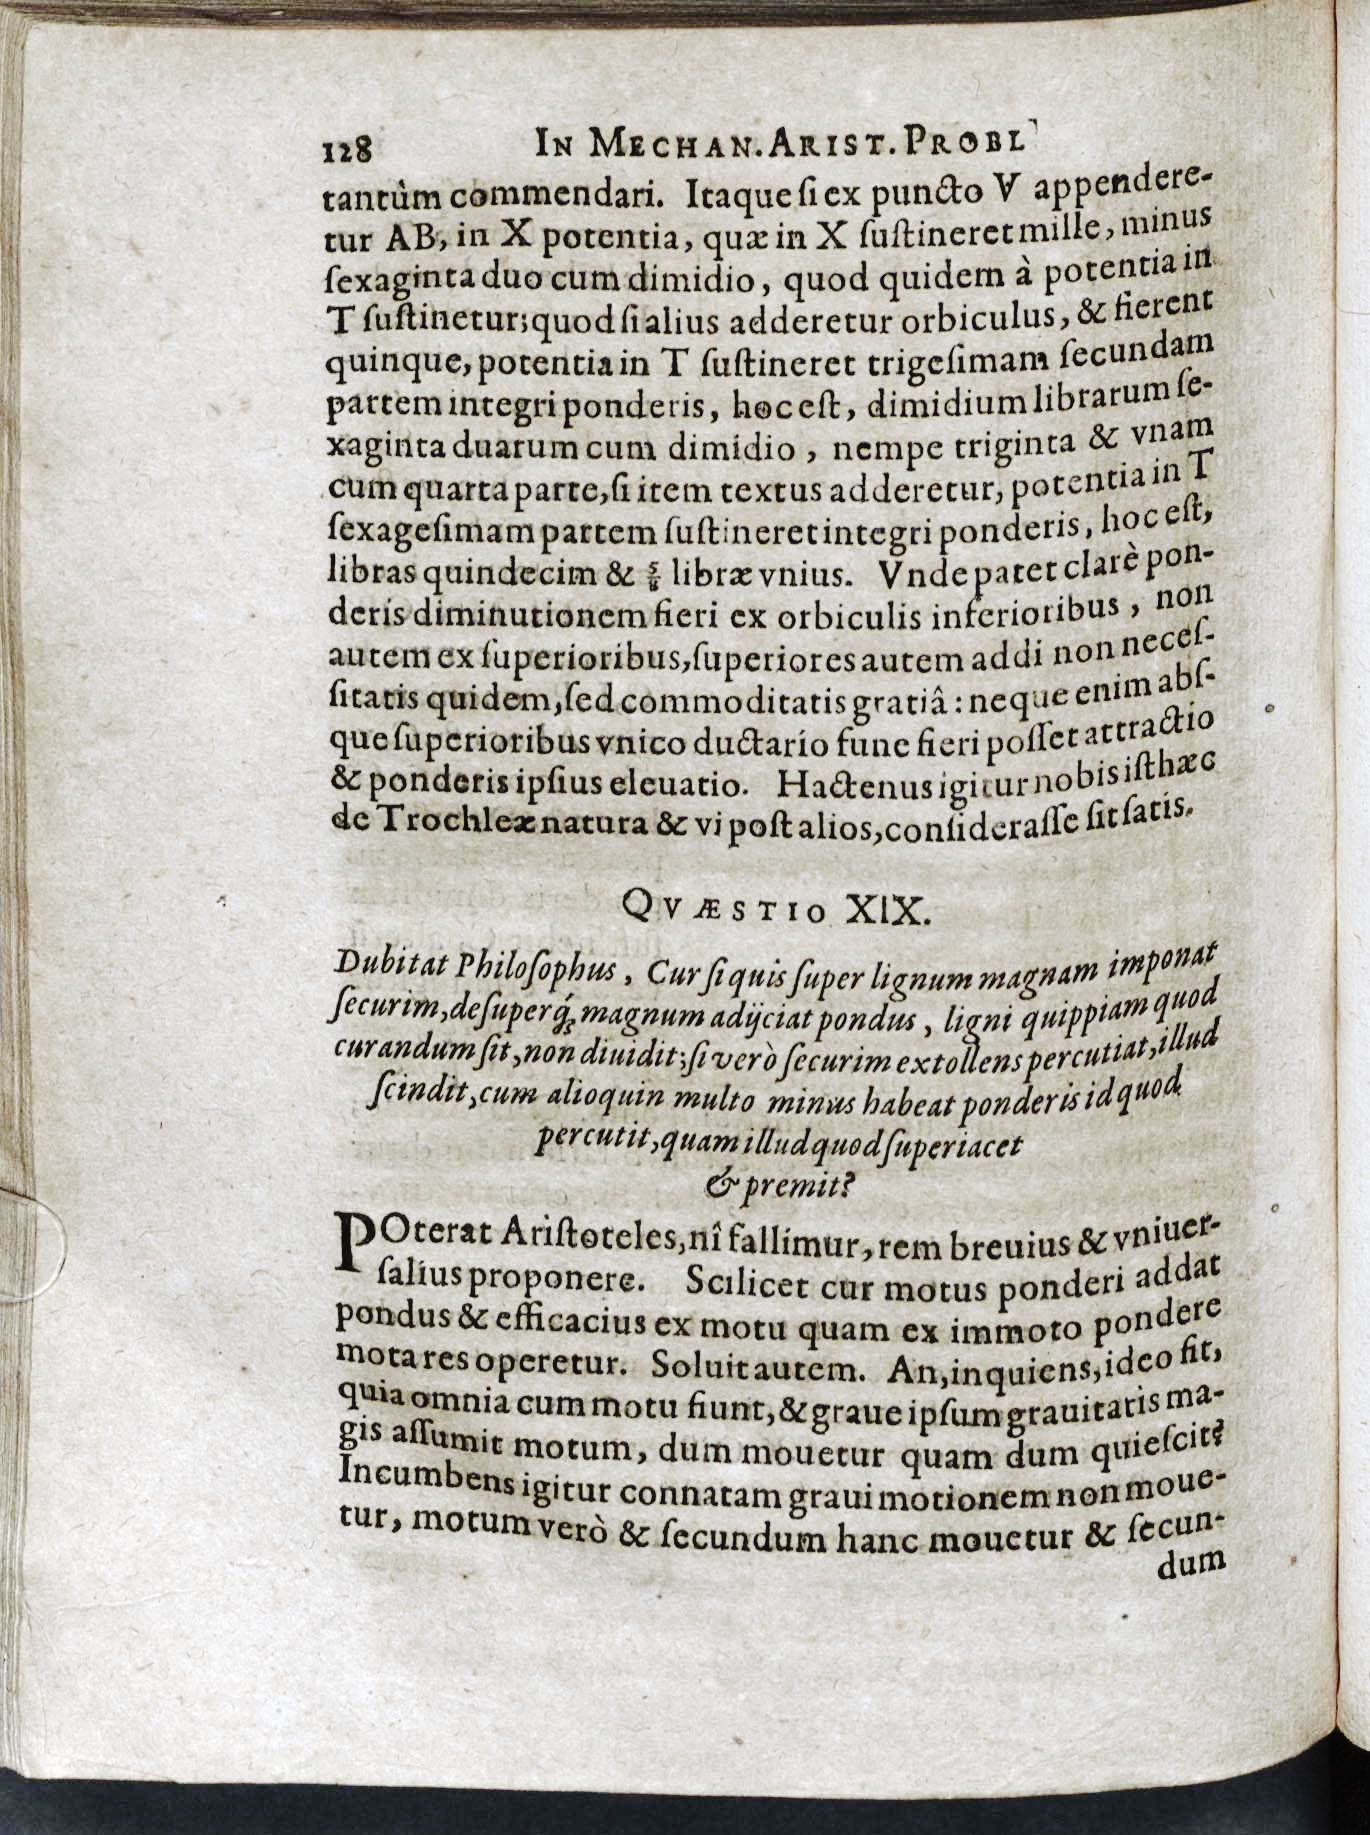 128 IN MECHAN. ARIST. PROBL
tantùm commendari. Itaque ſi ex puncto V appendere-
tur AB, in X potentia, quæ in X ſuſtineret mille, minus
ſexaginta duo cum dimidio, quod quidem à potentia in
T ſuſtinetur; quod ſi alius adderetur orbiculus, & fierent
quinque, potentia in T ſuſtineret trigeſimam ſecundam
partem integri ponderis, hoc eſt, dimidium librarum ſe-
xaginta duarum cum dimidio, nempe triginta & vnam
cum quarta parte, ſi item textus adderetur, potentia in T
ſexageſimam partem ſuſtineret integri ponderis, hoc eſt,
libras quindecim & libræ vnius. Vnde patet clarè pon-
deris diminutionem fieri ex orbiculis inferioribus, non
autem ex ſuperioribus, ſuperiores autem addi non neceſ-
ſitatis quidem, ſed commoditatis gratiâ: neque enim abſ-
que ſuperioribus vnico ductario fune fieri poſſet attractio
& ponderis ipſius eleuatio. Hactenus igitur nobis iſthæc
de Trochleæ natura & vi poſt alios, conſideraſſe ſit ſatis.
QVÆSTIO XIX.
Dubitat Philoſophus, Cur ſi quis ſuper lignum magnam imponat
ſecurim, deſuperq́; magnum adijciat pondus, ligni quippiam quod
curandum ſit, non diuidit; ſi verò ſecurim extollens percutiat, illud
ſcindit, cum alioquin multo minus habeat ponderis id quod
percutit, quam illud quod ſuperiacet
& premit?
POterat Ariſtoteles, nî fallimur, rem breuius & vniuer-
ſalius proponere. Scilicet cur motus ponderi addat
pondus & efficacius ex motu quam ex immoto pondere
mota res operetur. Soluit autem. An, inquiens, ideo fit,
quia omnia cum motu fiunt, & graue ipſum grauitatis ma-
gis aſſumit motum, dum mouetur quam dum quieſcit?
Incumbens igitur connatam graui motionem non moue-
tur, motum verò & ſecundum hanc mouetur & ſecun-
dum